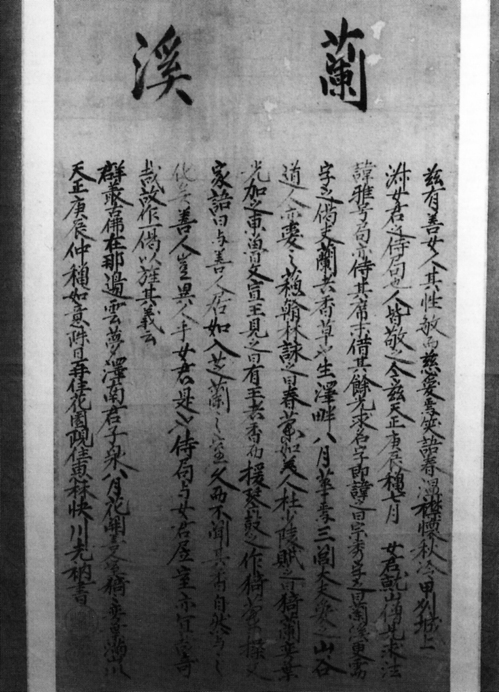 蘭溪
茲有善女人其性敏而慈愛焉笑語春温襟懷秋冷甲刕城上
女君之侍局也人皆敬之今茲天正庚辰穐七月 女君就山僧見求法
諱雅号局亦侍其席末借其餘光求名字即諱之曰宗秀字之曰蘭溪更需
字之偈夫蘭者香草也生澤畔八月華香三閭大夫愛之山谷
道人亦愛之蘓翰林詠之曰春蘭如美人杜少陵賦之曰猗蘭奕葉
光加之東魯文宣王見之曰有王者香而援琴鼓之作猗蘭操又
家語曰与善人居如入芝蘭之室久而不聞其香自然与之
化矣善人豈異人乎女君是也侍局与女君居室亦宜奇
哉故作一偈以旌其義云
群叢古佛在那邊雲夢澤南君子泉八月花開
天正庚辰仲穐如意珠日再住花園現住惠林快川老衲書